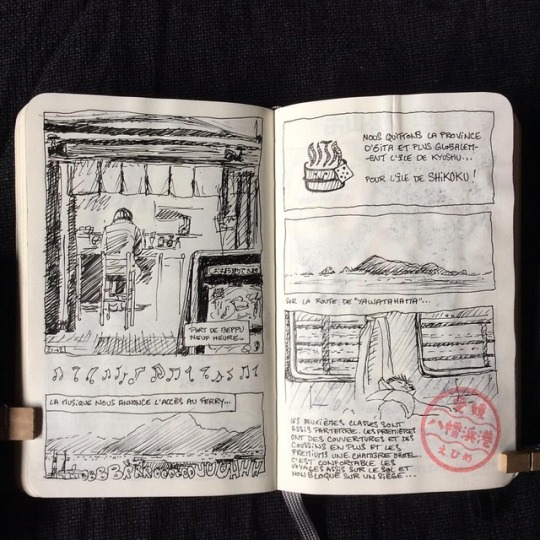 PORT DE BEPPU
NEUF HEURE...
LA MUSIQUE NOUS ANNONCE L'ACCÈS AU FERRY...
NOUS QUITTONS LA PROVINCE
D'ÔITA ET PLUS GLOBALEM-
-ENT L'ÎLE DE KYOSHU...
POUR L'ÎLE DE SHIKOKU !
SUR LA ROUTE DE "YAWATAHAMA"...
LES DEUXIÈMES CLASSES SONT
ASSIS PARTERRE. LES PREMIÈRES
ONT DES COUVERTURES ET DES
COUSSINS EN PLUS ET LES
PREMIUMS UNE CHAMBRE D'HÔTEL.
C'EST CONFORTABLE LES
VOYAGES ASSIS SUR LE SOL ET
NON BLOQUÉ SUR UN SIÈGE...
愛媛
八幡浜港
えひめ